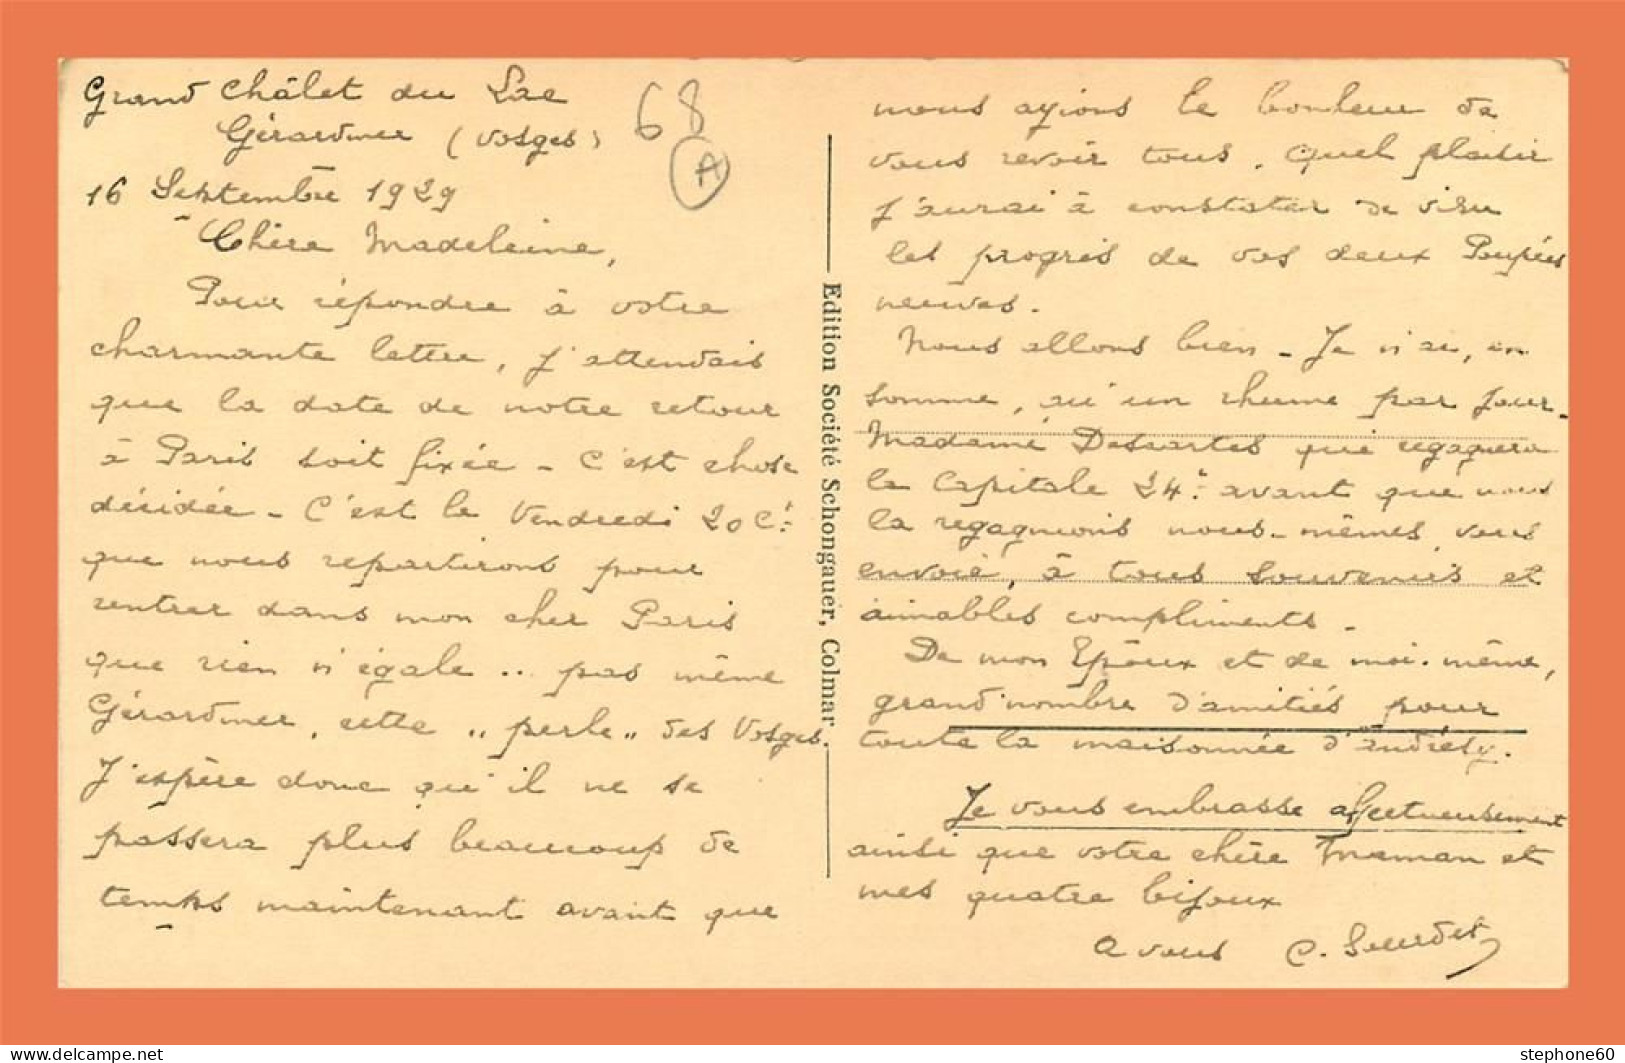 Grand Châlet du Lac
Gérardmer (Vosges)
68
A
16 Septembre 1929
Chère Madeleine,
Pour répondre à votre
charmante lettre, j'attendais
que la date de notre retour
à Paris soit fixée - C'est chose
décidée - C'est le Vendredi 20 Ct:
que nous repartirons pour
rentrer dans mon cher Paris
que rien n'égale .. pas même
Gérardmer, cette "perle" des Vosges.
J'espère donc qu'il ne se
passera plus beaucoup de
temps maintenant avant que
Edition Société Schongauer, Colmar
nous ayions le bonheur de
vous revoir tous. Quel plaisir
j'aurai à constater de visu
les progrès de vos deux Poupées
neuves.
Nous allons bien - Je n'ai, en
somme, qu'un rhume par jour -
Madame Descartes qui regagnera
la Capitale 24h: avant que nous
la regagnions nous-mêmes, vous
envoie, à tous souvenirs et
aimables compliments -
De mon Epoux et de moi-même,
grand nombre d'amitiés pour
toute la maisonnée d'Andrésy.
Je vous embrasse affectueusement
ainsi que votre chère Maman et
mes quatre bijoux
A vous C.
stephone60